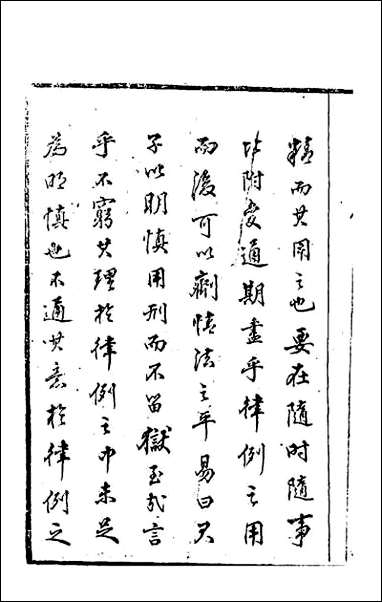 精而其用之也要在隨時隨事
比附変通期盡乎律例之用
而後可以劑情法之平易曰君
子以明慎用刑而不留獄至哉言
乎不窮其理於律例之中未足
為明慎也不通其意於律例之